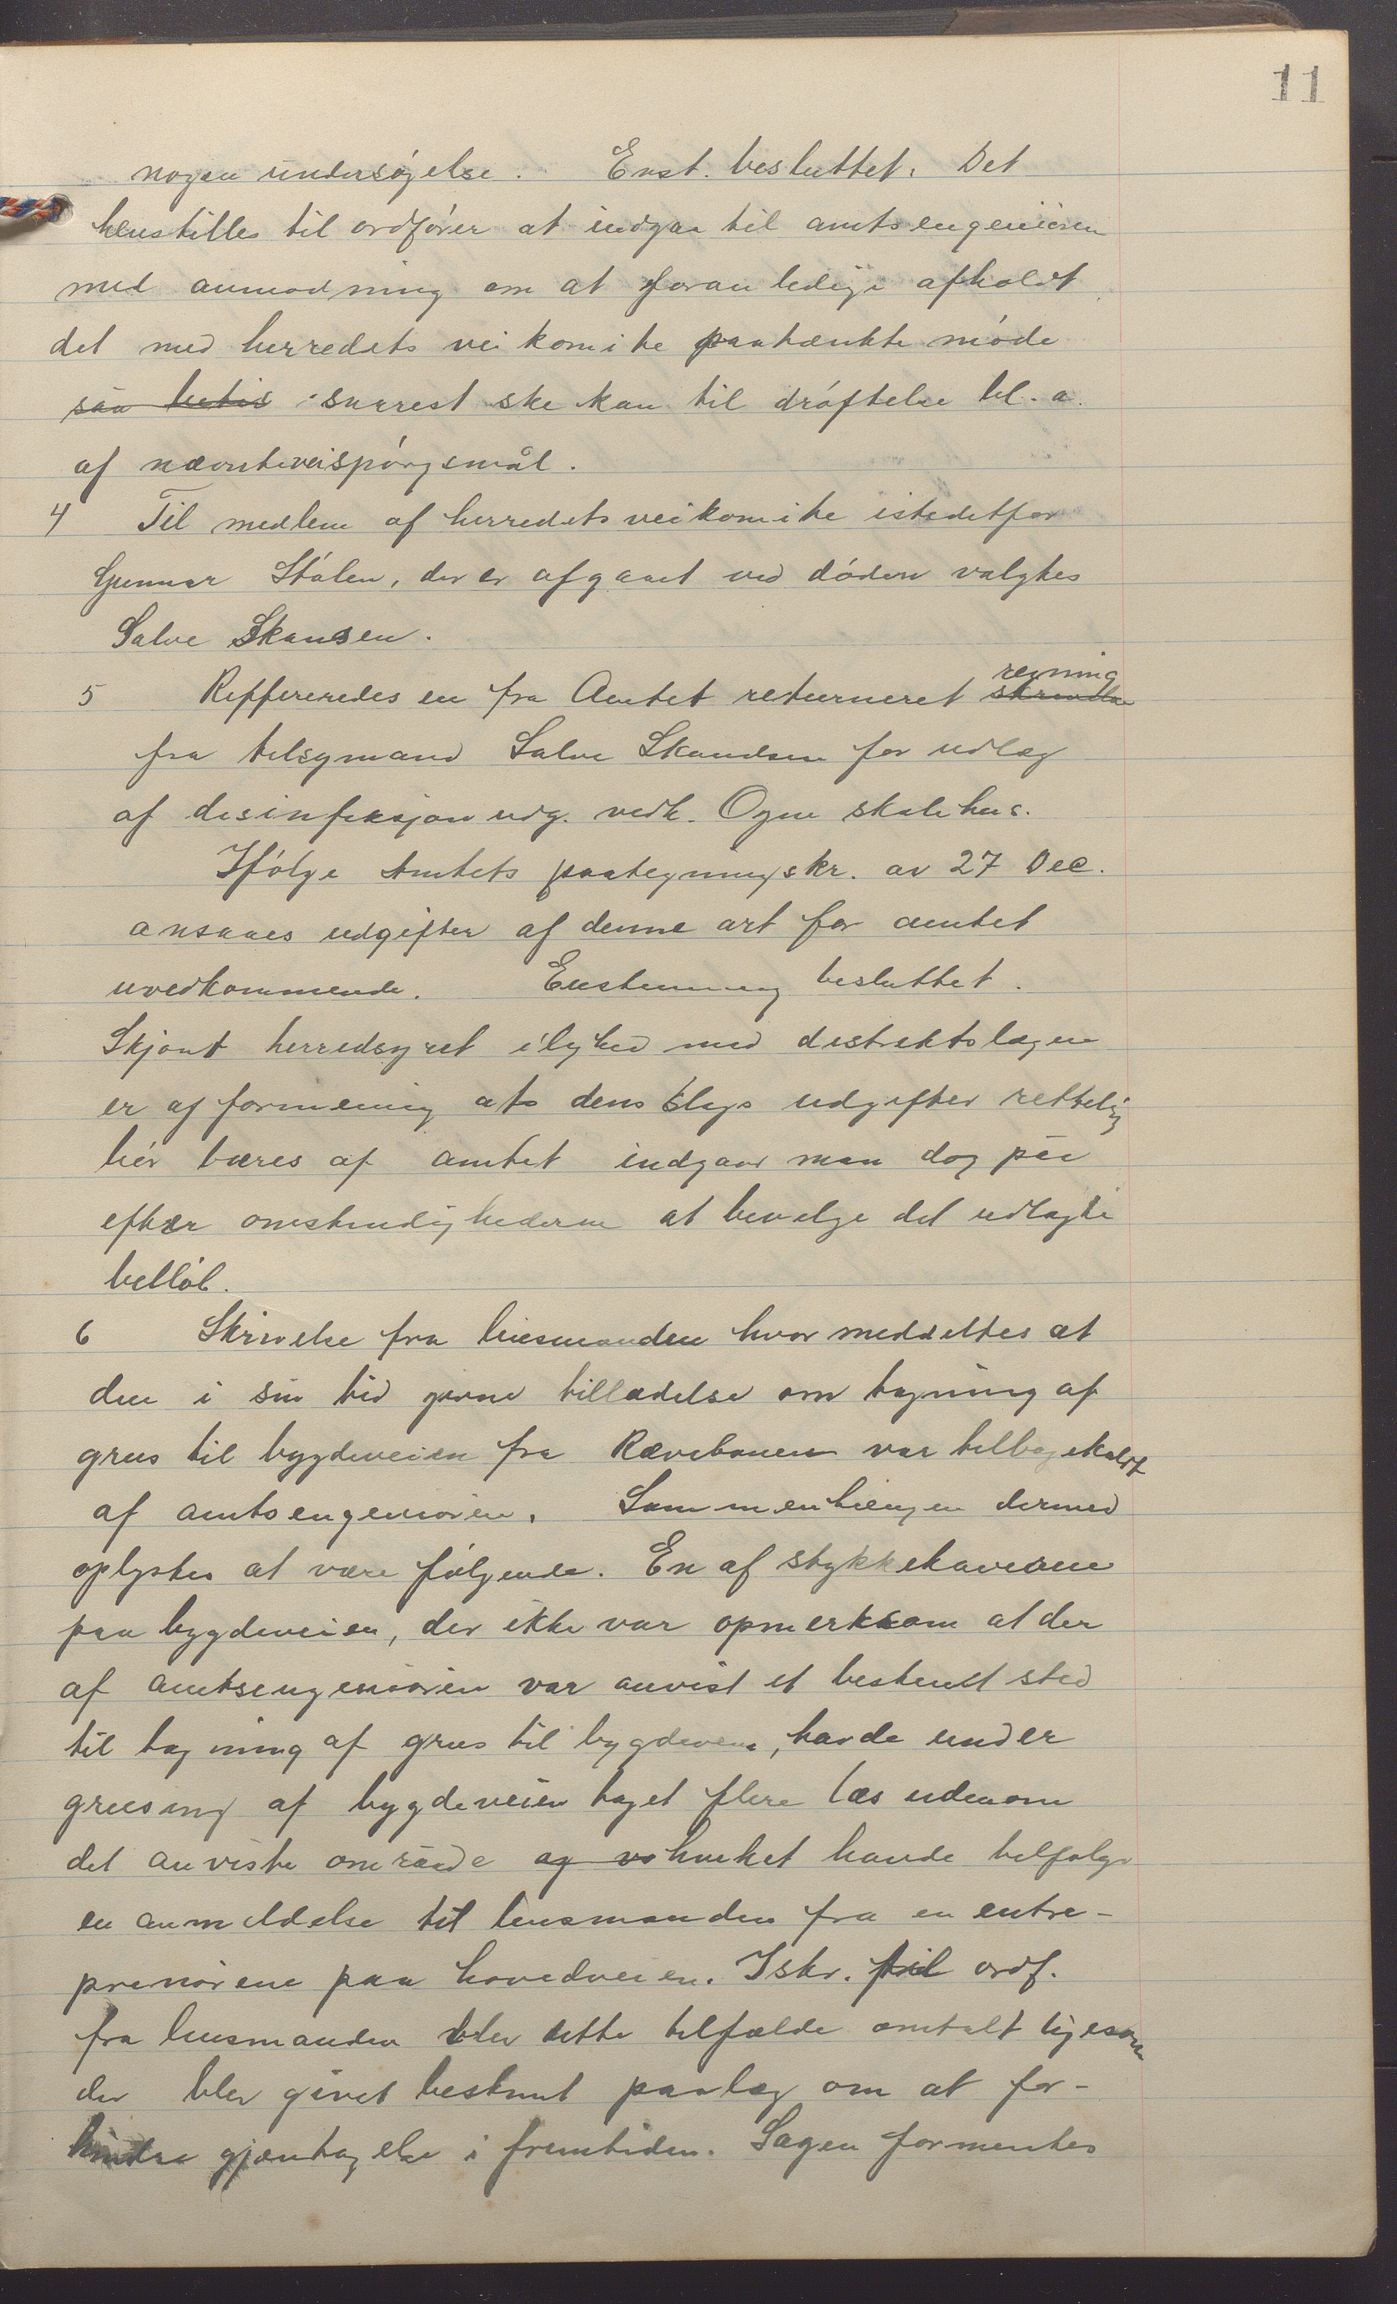 11
nogen undersøgelse. Enst. besluttet. Det
henstilles til ordfører at indgaa til amtsengeniøren
med anmodning om at foranledige afholdt
det med herredets veikomite paatænkte møde
saa betis snarest ske kan til drøftelse bl. a.
af nævnte veispørgsmål.
4 Til medlem af herredets veikomite istedetfor
Gunnar Stólen, der er afgaaet ved døden valgtes
Salve Skansen.
regning
5 Reffereredes en fra Amtet returneret skrivelse
fra tilsynsmand Salve Skandsen for udlæg
af desinfeksjon udg. vedk. Ogne skolehus.
Ifølge Amtets paategningskr. av 27 Dec.
ansaaes udgifter af denne art for amtet
uvedkommende. Enstemmig besluttet.
Skjønt herredsyret i lighed med distriktslægen
er af formening at denslags udgifter rettelig
bör bæres af amtet indgaar man dog på
efter omstendighederne at bevilge det udlagte
belløb.
6 Skrivelse fra lensmanden hvor meddeltes at
den i sin tid givne tilladelse om tagning af
grus til bygdeveien fra Rævebanen var tilbagekaldt
af amtsengeniøren. Sammenhengen dermed
oplystes at være følgende. En af stykkehaverne
paa bygdeveien, der ikke var opmerksom at der
af amtsengeniøren var anvist et bestemt sted
til tagning af grus til bygdeveien, havde under
grusing af bygdeveien taget flere læs udenom
det anviste område og vo hvilket havde tilfølge
en anmeldelse til lensmanden fra en entre-
prenørene paa hovedveien. I skr. til ordf.
fra lensmanden blev dette tilfælde omtalt ligesom
der blev givet bestemt paalæg om at for-
hindre gjentagelse i fremtiden. Sagen formentes